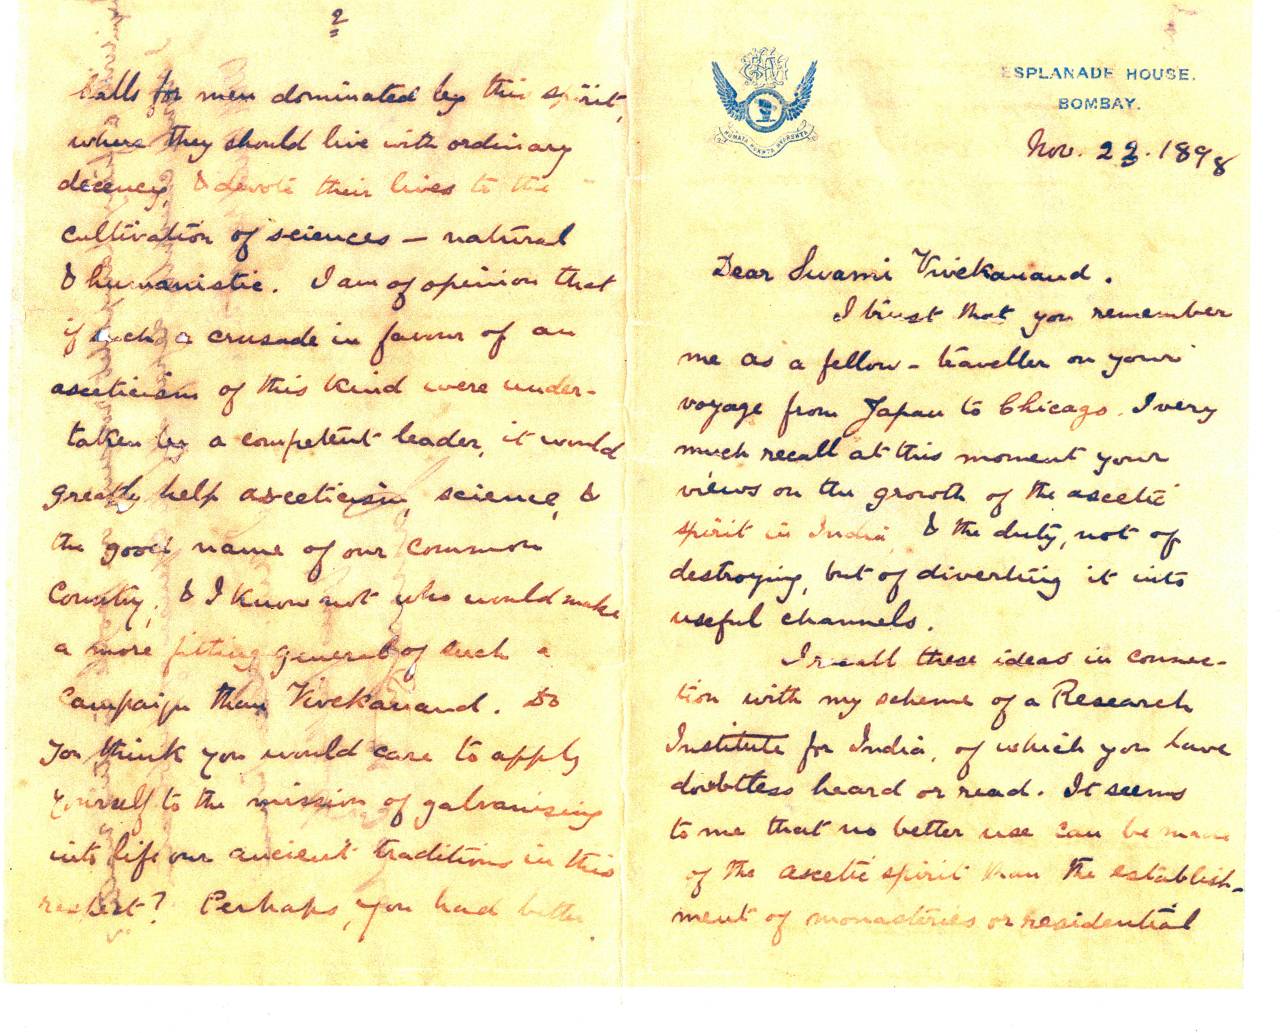 ESPLANADE HOUSE.
BOMBAY.
HUMATA HUKHTA HVARSHTA
Nov. 23. 1898
Dear Swami Vivekanand.
I trust that you remember
me as a fellow-traveller on your
voyage from Japan to Chicago. I very
much recall at this moment your
views on the growth of the ascetic
spirit in India, & the duty, not of
destroying, but of diverting it into
useful channels.
I recall these ideas in connec-
tion with my scheme of a Research
Institute for India, of which you have
doubtless heard or read. It seems
to me that no better use can be made
of the ascetic spirit than the establish-
ment of monasteries or residential
2
halls for men dominated by this spirit,
where they should live with ordinary
decency, & devote their lives to the
cultivation of sciences — natural
& humanistic. I am of opinion that
if such a crusade in favour of an
asceticism of this kind were under-
taken by a competent leader, it would
greatly help asceticism, science, &
the good name of our common
country; & I know not who would make
a more fitting general of such a
campaign than Vivekanand. Do
you think you would care to apply
yourself to the mission of galvanising
into life our ancient traditions in this
respect? Perhaps, you had better